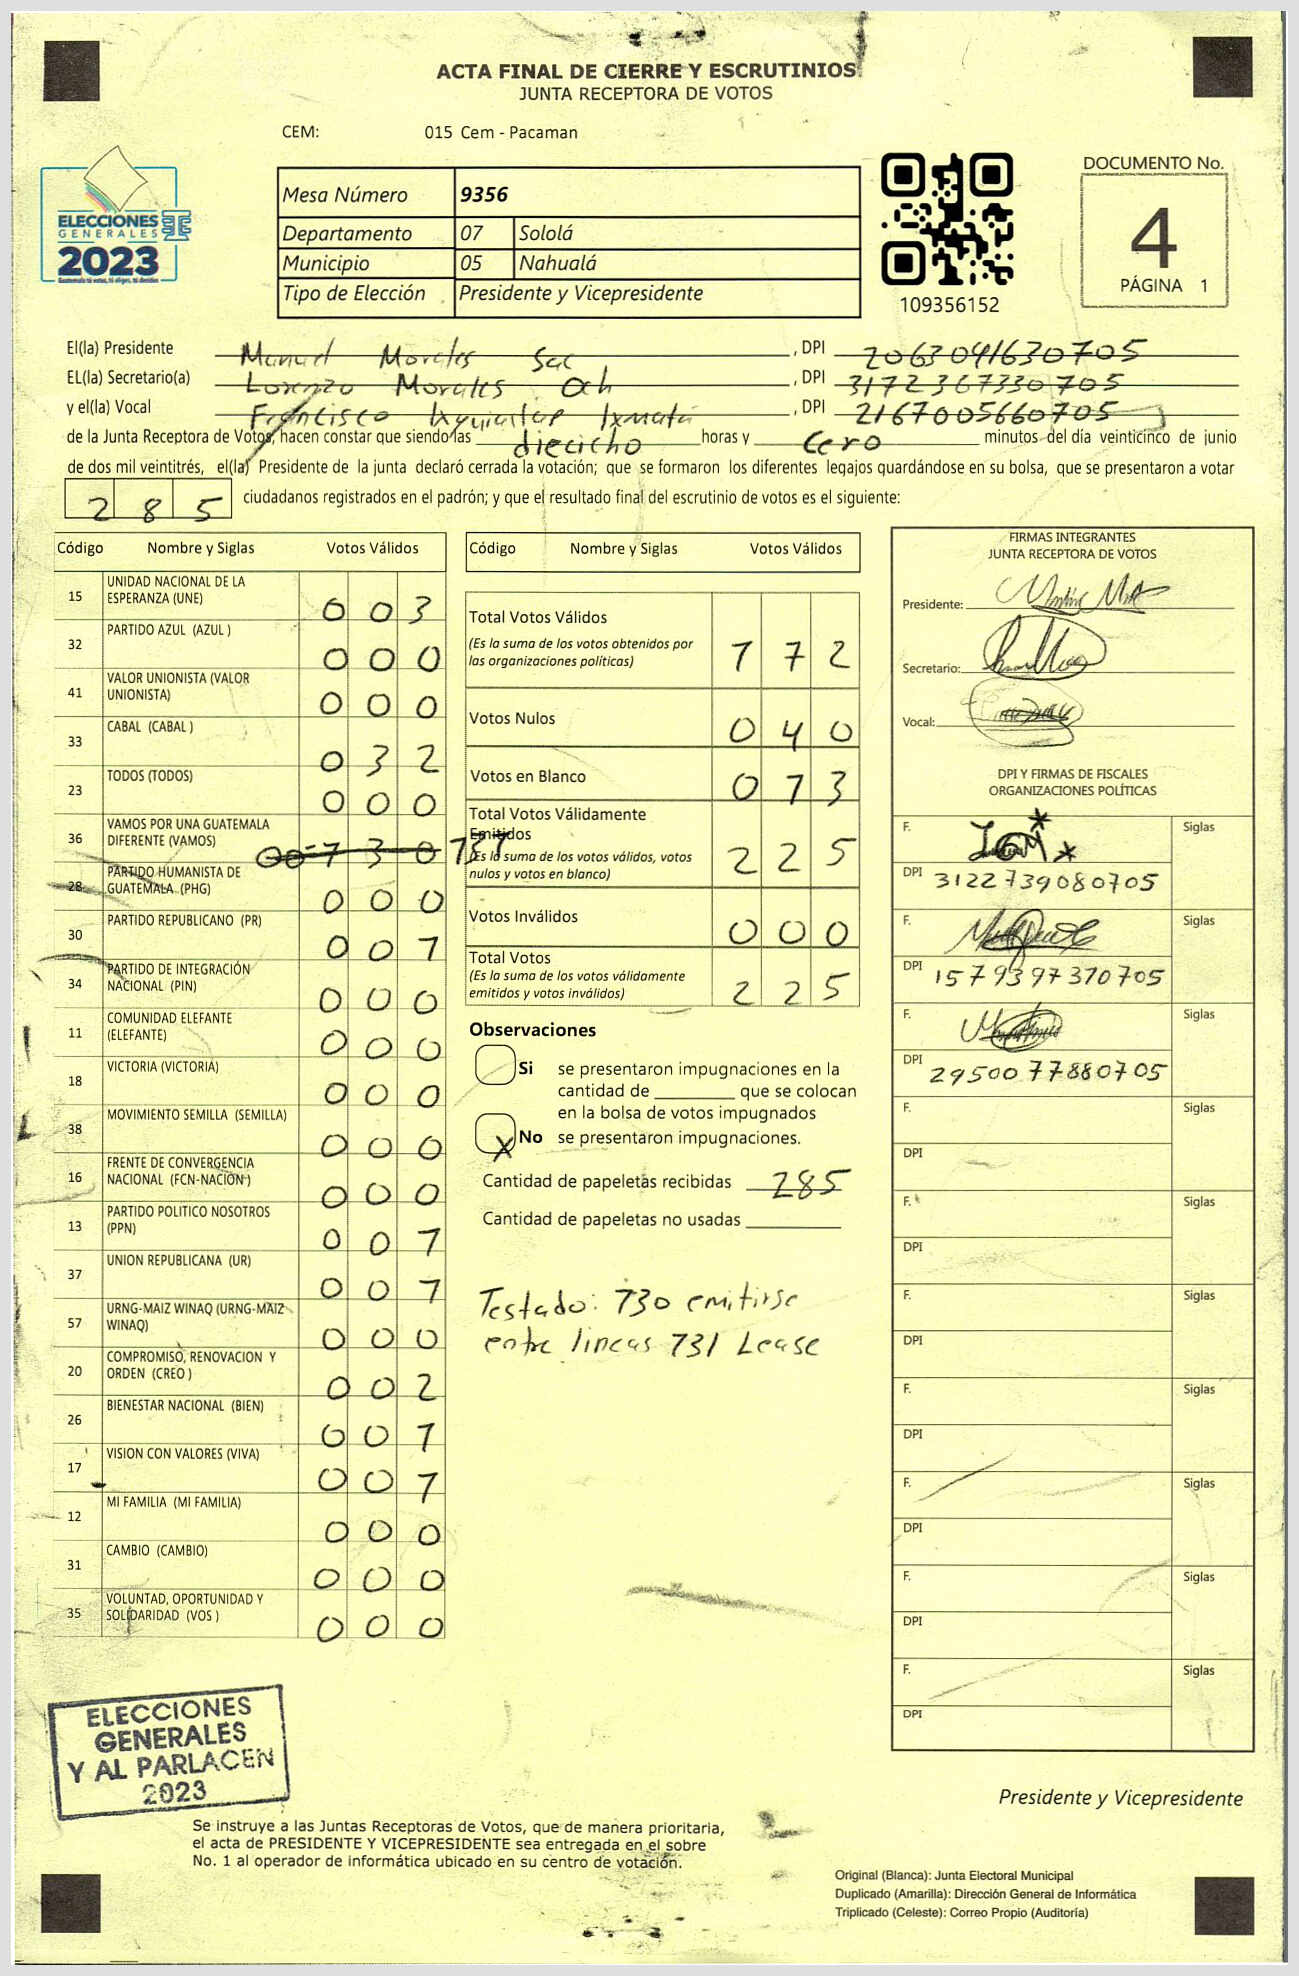 ACTA FINAL DE CIERRE Y ESCRUTINIOS
JUNTA RECEPTORA DE VOTOS
CEM: 015 Cem - Pacaman
ELECCIONES
GENERALES
2023
Mesa Número 9356
Departamento 07 Sololá
Municipio 05 Nahualá
Tipo de Elección Presidente y Vicepresidente
109356152
DOCUMENTO No.
4
PÁGINA 1
El(la) Presidente Manuel Morales Sac , DPI 2063041630705
EL(la) Secretario(a) Lorenzo Morales Och , DPI 3172367330705
y el(la) Vocal Francisco Ixmatá , DPI 2167005660705
de la Junta Receptora de Votos, hacen constar que siendo las diecicho horas y cero minutos del día veinticinco de junio
de dos mil veintitrés, el(la) Presidente de la junta declaró cerrada la votación; que se formaron los diferentes legajos quardándose en su bolsa, que se presentaron a votar
285 ciudadanos registrados en el padrón; y que el resultado final del escrutinio de votos es el siguiente:
Código Nombre y Siglas Votos Válidos
15 UNIDAD NACIONAL DE LA ESPERANZA (UNE) 003
32 PARTIDO AZUL (AZUL ) 000
41 VALOR UNIONISTA (VALOR UNIONISTA) 000
33 CABAL (CABAL ) 032
23 TODOS (TODOS) 000
36 VAMOS POR UNA GUATEMALA DIFERENTE (VAMOS) 130 131
28 PARTIDO HUMANISTA DE GUATEMALA (PHG) 000
30 PARTIDO REPUBLICANO (PR) 001
34 PARTIDO DE INTEGRACIÓN NACIONAL (PIN) 000
11 COMUNIDAD ELEFANTE (ELEFANTE) 000
18 VICTORIA (VICTORIA) 000
38 MOVIMIENTO SEMILLA (SEMILLA) 000
16 FRENTE DE CONVERGENCIA NACIONAL (FCN-NACION ) 000
13 PARTIDO POLITICO NOSOTROS (PPN) 001
37 UNION REPUBLICANA (UR) 001
57 URNG-MAIZ WINAQ (URNG-MAIZ WINAQ) 000
20 COMPROMISO, RENOVACION Y ORDEN (CREO ) 002
26 BIENESTAR NACIONAL (BIEN) 001
17 VISION CON VALORES (VIVA) 001
12 MI FAMILIA (MI FAMILIA) 000
31 CAMBIO (CAMBIO) 000
35 VOLUNTAD, OPORTUNIDAD Y SOLIDARIDAD (VOS ) 000
Código Nombre y Siglas Votos Válidos
Total Votos Válidos 172
(Es la suma de los votos obtenidos por
las organizaciones políticas)
Votos Nulos 040
Votos en Blanco 013
Total Votos Válidamente
Emitidos 225
(Es la suma de los votos válidos, votos
nulos y votos en blanco)
Votos Inválidos 000
Total Votos 225
(Es la suma de los votos válidamente
emitidos y votos inválidos)
Observaciones
Si se presentaron impugnaciones en la
cantidad de ________ que se colocan
en la bolsa de votos impugnados
X No se presentaron impugnaciones.
Cantidad de papeletas recibidas 285
Cantidad de papeletas no usadas
Testado: 130 emitirse
entre lineas 131 Lease
FIRMAS INTEGRANTES
JUNTA RECEPTORA DE VOTOS
Presidente:
Secretario:
Vocal:
DPI Y FIRMAS DE FISCALES
ORGANIZACIONES POLÍTICAS
F. Siglas
DPI 3122739080705
F. Siglas
DPI 1579397370705
F. Siglas
DPI 2950077880705
F. Siglas
DPI
F. Siglas
DPI
F. Siglas
DPI
F. Siglas
DPI
F. Siglas
DPI
F. Siglas
DPI
F. Siglas
DPI
ELECCIONES
GENERALES
Y AL PARLACEN
2023
Presidente y Vicepresidente
Se instruye a las Juntas Receptoras de Votos, que de mánera prioritaria,
el acta de PRESIDENTE Y VICEPRESIDENTE sea entregada en el sobre
No. 1 al operador de informática ubicado en su centro de votación.
Original (Blanca): Junta Electoral Municipal
Duplicado (Amarilla): Dirección General de Informática
Triplicado (Celeste): Correo Propio (Auditoría)